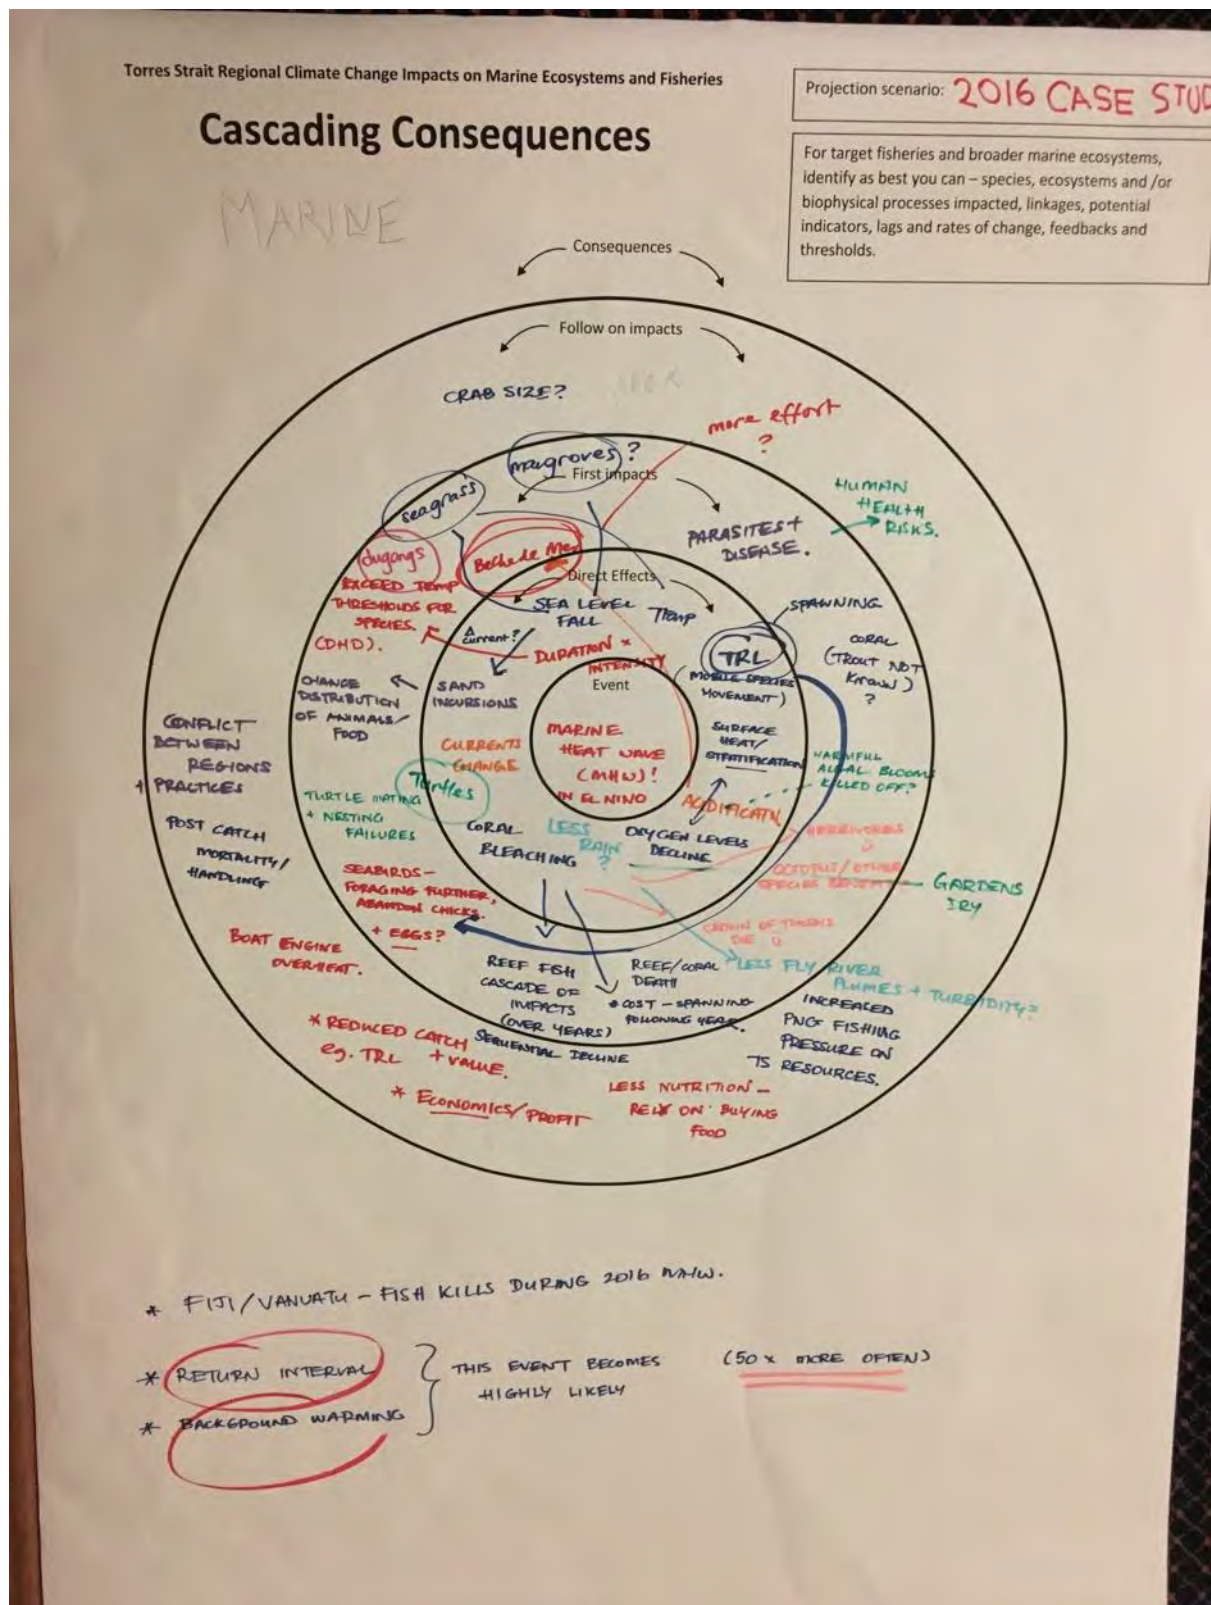 Torres Strait Regional Climate Change Impacts on Marine Ecosystems and Fisheries
Cascading Consequences
Projection scenario: 2016 CASE STUD
For target fisheries and broader marine ecosystems,
identify as best you can – species, ecosystems and /or
biophysical processes impacted, linkages, potential
indicators, lags and rates of change, feedbacks and
thresholds.
MARINE
Consequences
Follow on impacts
CRAB SIZE?
more effort
?
mangroves?
First impacts
seagrass
HUMAN
HEALTH
RISKS.
PARASITES +
DISEASE.
dugongs
Beche de Mer
EXCEED TEMP
THRESHOLDS FOR
SPECIES.
(DHD).
Direct Effects
SEA LEVEL
FALL
Temp
SPAWNING
Δ
current?
DURATION ×
INTENSITY
TRL
(MOBILE SPECIES
MOVEMENT)
CORAL
(TROUT NOT
KNOWN)
?
Event
CHANGE
DISTRIBUTION
OF ANIMALS/
FOOD
SAND
INCURSIONS
MARINE
HEAT WAVE
(MHW)!
IN EL NINO
SURFACE
HEAT/
STRATIFICATION
CONFLICT
BETWEEN
REGIONS
+ PRACTICES
CURRENTS
CHANGE
HARMFUL
ALGAL BLOOMS
KILLED OFF?
Turtles
TURTLE MATING
+ NESTING
FAILURES
ACIDIFICATN
CORAL
BLEACHING
LESS
RAIN
?
OXYGEN LEVELS
DECLINE
HERBIVORES
POST CATCH
MORTALITY/
HANDLING
OCTOPUS/OTHER
SPECIES BENEFIT
GARDENS
DRY
SEABIRDS –
FORAGING FURTHER,
ABANDON CHICKS.
+ EGGS?
CROWN OF THORNS
DIE
BOAT ENGINE
OVERHEAT.
REEF FISH
CASCADE OF
IMPACTS
(OVER YEARS)
SEQUENTIAL DECLINE
REEF/CORAL
DEATH
* COST – SPANNING
FOLLOWING YEAR.
LESS FLY RIVER
PLUMES + TURBIDITY?
INCREASED
PNG FISHING
PRESSURE ON
TS RESOURCES.
* REDUCED CATCH
eg. TRL + VALUE.
* ECONOMICS/PROFIT
LESS NUTRITION –
RELY ON BUYING
FOOD
* FIJI/VANUATU – FISH KILLS DURING 2016 MHW.
* RETURN INTERVAL
* BACKGROUND WARMING
THIS EVENT BECOMES
HIGHLY LIKELY
(50 × MORE OFTEN)